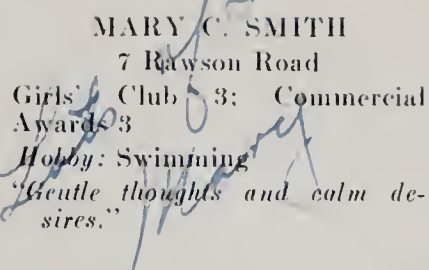 MARY C. SMITH
7 Rawson Road
Girls' Club 3; Commercial
Awards 3
Hobby: Swimming
"Gentle thoughts and calm de-
sires."